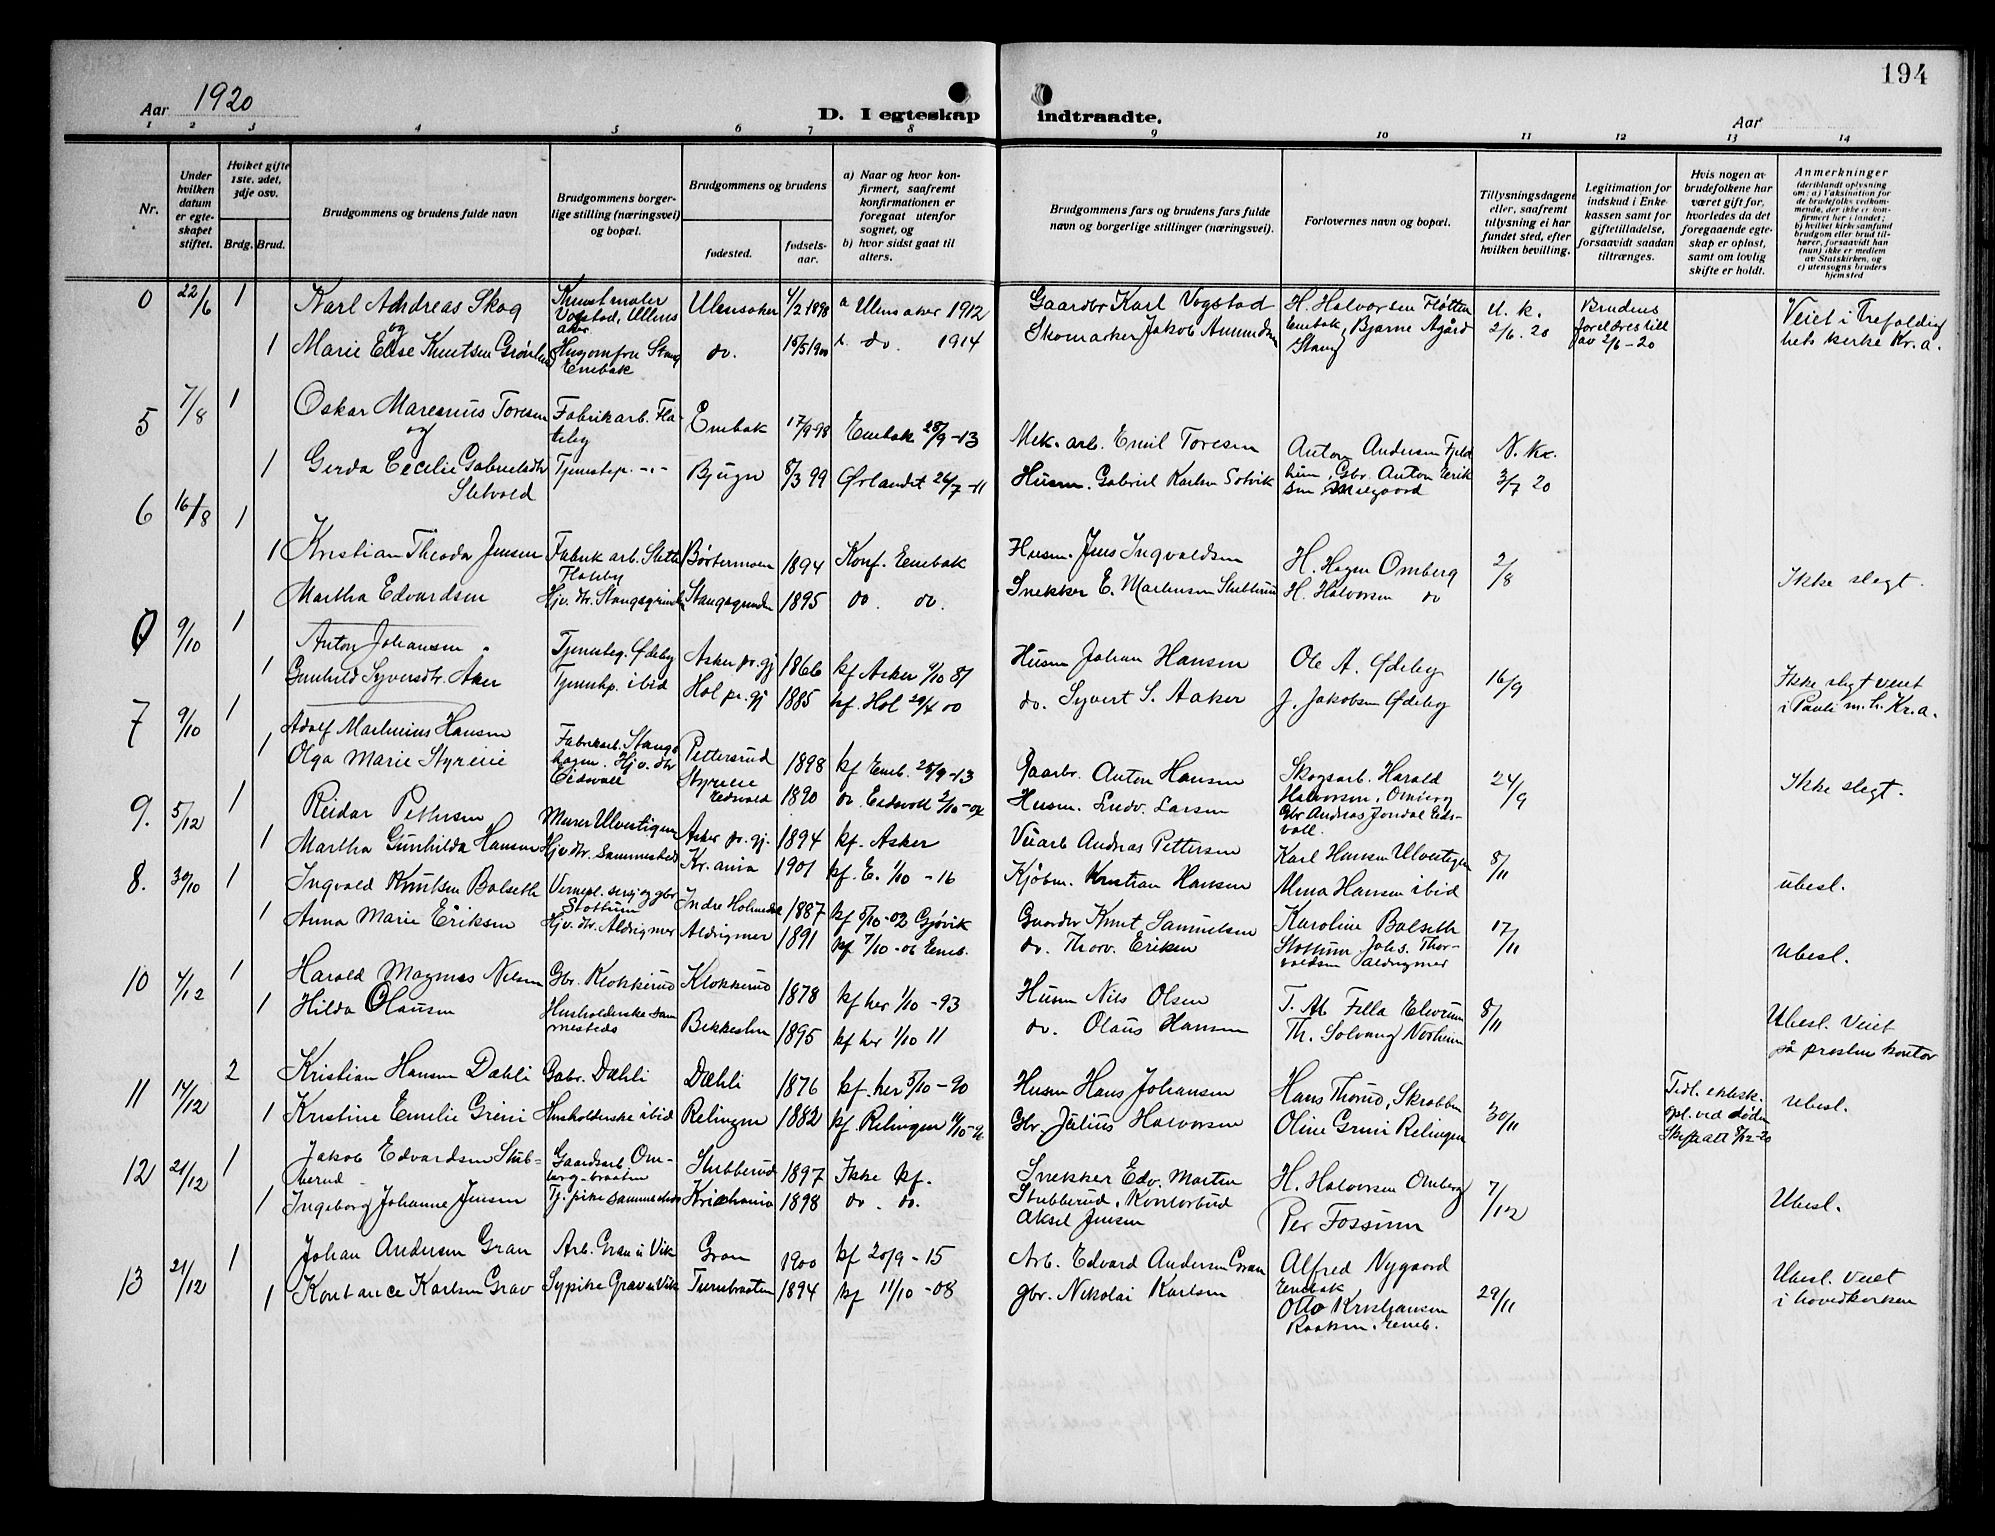 194
Aar 1920
D. I egteskap indtraadte.
Aar
1 2 3 4 5 6 7 8 9 10 11 12 13 14
Nr.
Under hvilken datum er egteskapet stiftet.
Hvilket gifte 1ste, 2det, 3dje osv.
Brdg. Brud.
Brudgommens og brudens fulde navn
Brudgommens borgerlige stilling (næringsvei) og bopæl.
Brudgommens og brudens
fødested.
fødselsaar.
a) Naar og hvor konfirmert, saafremt konfirmationen er foregaat utenfor sognet, og
b) hvor sidst gaat til alters.
Brudgommens fars og brudens fars fulde navn og borgerlige stillinger (næringsvei).
Forlovernes navn og bopæl.
Tillysningsdagene eller, saafremt tillysning ei har fundet sted, efter hvilken bevilling.
Legitimation for indskud i Enkekassen samt for giftetilladelse, forsaavidt saadan tiltrænges.
Hvis nogen av brudefolkene har været gift før, hvorledes da det foregaaende egteskap er opløst, samt om lovlig skifte er holdt.
Anmerkninger
(deriblandt oplysning om: a) Vaksination for de brudefolks vedkommende, der ikke er konfirmert her i landet; b) hvilket kirkesamfund brudgom eller brud tilhører, forsaavidt han (hun) ikke er medlem av Statskirken, og c) utensogns bruders hjemsted
0 22/6 1 Karl Andreas Skog Kunstmaler Vogstad, Ullensaker Ulensaker 4/2 1898 a Ulensaker 1912 Gaardbr Karl Vogstad H. Halvorsen Fløtten Enebak, Bjarne Agård Stang U. k. 2/6. 20 Brudens foreldres till av 2/6-20 Veiet i Trefoldighets kerke Kr.a.
og
1 Marie Else Knutsen Enebak do. 15/5 1900 do. 1914 Skomaker Jakob Amundsen
5 7/8 1 Oskar Maresius Toresen Fabrikarb. Flateby Enebak 17/9-98 Enebak 28/9-13 Mek. arb. Emil Toresen Anton Andersen N. Kr. 3/7 20
og
1 Gerda Cecelie Gabrielsdtr Sletvold Tjenestep. -"- Bjugn 8/3 99 Ørlandet 26/7-11 Husm. Gabriel Karlsen Solvik Gbr. Anton Eriksen
6 16/8 1 Kristian Theodor Jensen Fabrik arb. Flateby Børtermoen 1894 Konf. Enebak Husm. Jens Ingvaldsen H. Hagen Omberg 2/8
1 Martha Edvardsen Hjv. dtr. Stangsgrinden Stangsgrinden 1895 do. do. Snekker E. Martinsen Stubberud H. Halvorsen do Ikke slegt.
0 9/10 1 Anton Johansen Tjenesteg. Ødeby Asker pr.gj 1866 kf Asker 1/10 81 Husm Johan Hansen Ole A. Ødeby 16/9
1 Gunhild Syversdtr. Aker Tjenestp. ibid Hol pr. gj 1885 kf. Hol 29/4 00 do. Syvert S. Aaker J. Jakobsen Ødeby Ikke slegt veiet i Pauli m.h. Kr.a.
7 9/10 1 Adolf Martinius Hansen Fabrikarb. Stangshagen. Pettersrud 1898 kf Eneb. 28/9-13 Gaarbr. Anton Hansen Skogsarb. Harald Halvorsen, Omberg 24/9
1 Olga Marie Styreie Hjv. dtr Eidsvall Styreie Eidsvold 1890 do. Eidsvoll 2/10-04 Husm. Ludv. Larsen Gbr Andreas Jondal Eidsvall. Ikke slegt.
9. 5/12 1 Reidar Pettersen Murer Ulvestigen Asker pr. gj. 1894 kf. Asker Veiarb Andreas Pettersen Karl Hansen Ulvestigen 8/11
1 Martha Gunhilda Hansen Hjv.dtr. Sammesteds Kr.ania 1901 kf. E. 1/10 - 16 Kjøbm. Kristian Hansen Alma Hansen ibid ubesl.
8. 30/10 1 Ingvald Knutsen Balseth Vernepl. sersj og gbr Stottum Indre Holmedal 1887 kf 5/10-02 Gjøvik Gaardbr Knut Samuelsen Karoline Balseth Stottum 17/11
1 Anna Marie Eriksen Hjv. dtr. Aldrigmer Aldrigmer 1891 kf 7/10-06 Eneb. do. Thorv. Eriksen Johs. Thorvaldsen Aldrigmer Ubesl.
10 4/12 1 Harald Magnus Nilsen Gbr. Klokkerud Klokkerud 1878 kf her 1/10-93 Husm Nils Olsen T. M. Filla Elvrum 8/11
1 Hilda Olausen Husholderske sammesteds Bekkeslun 1895 kf her 1/10 11 do. Olaus Hansen Th. Solvang Norheim Ubesl. Veiet på presten kontor
11 14/12 2 Kristian Hansen Dæhli Gabr. Dæhli Dæhli 1876 kf. her 5/10-90 Husm Hans Johansen Hans Thorud, Skrabben 30/11 Tidl. ektesk. opl. ved døden Skifte att 7/12-20 Ubesl.
1 Kristine Emelie Greni Husholderske ibid Relingen 1882 kf. Relingen Gbr. Julius Halvorsen Oline Greni Relingen
12 21/12 1 Jakob Edvardsen Stubberud Gaardsarb. Ombergbraaten Stubberud 1897 Ikke kf. Snekker Edv. Martin Stubberud, H. Halvorsen Omberg 7/12
1 Ingeborg Johanne Jensen Tj. pike Sammesteds Kristiania 1898 do. do. Kontorbud Aksel Jensen Per Fossum Ubesl.
13 21/12 1 Johan Andersen Gran Arb. Grav i Vik Gran 1900 kf 20/9-15 Arb. Edvard Andersen Gran Alfred Nygaard Enebak 29/11
1 Konstance Karlsen Grav Sypike Grav i Vik Turnbraaten 1894 kf 11/10-08 gbr. Nikolai Karlsen Otto Kristjansen Raaken. Eneb. Ubesl. veiet i hovedkerken